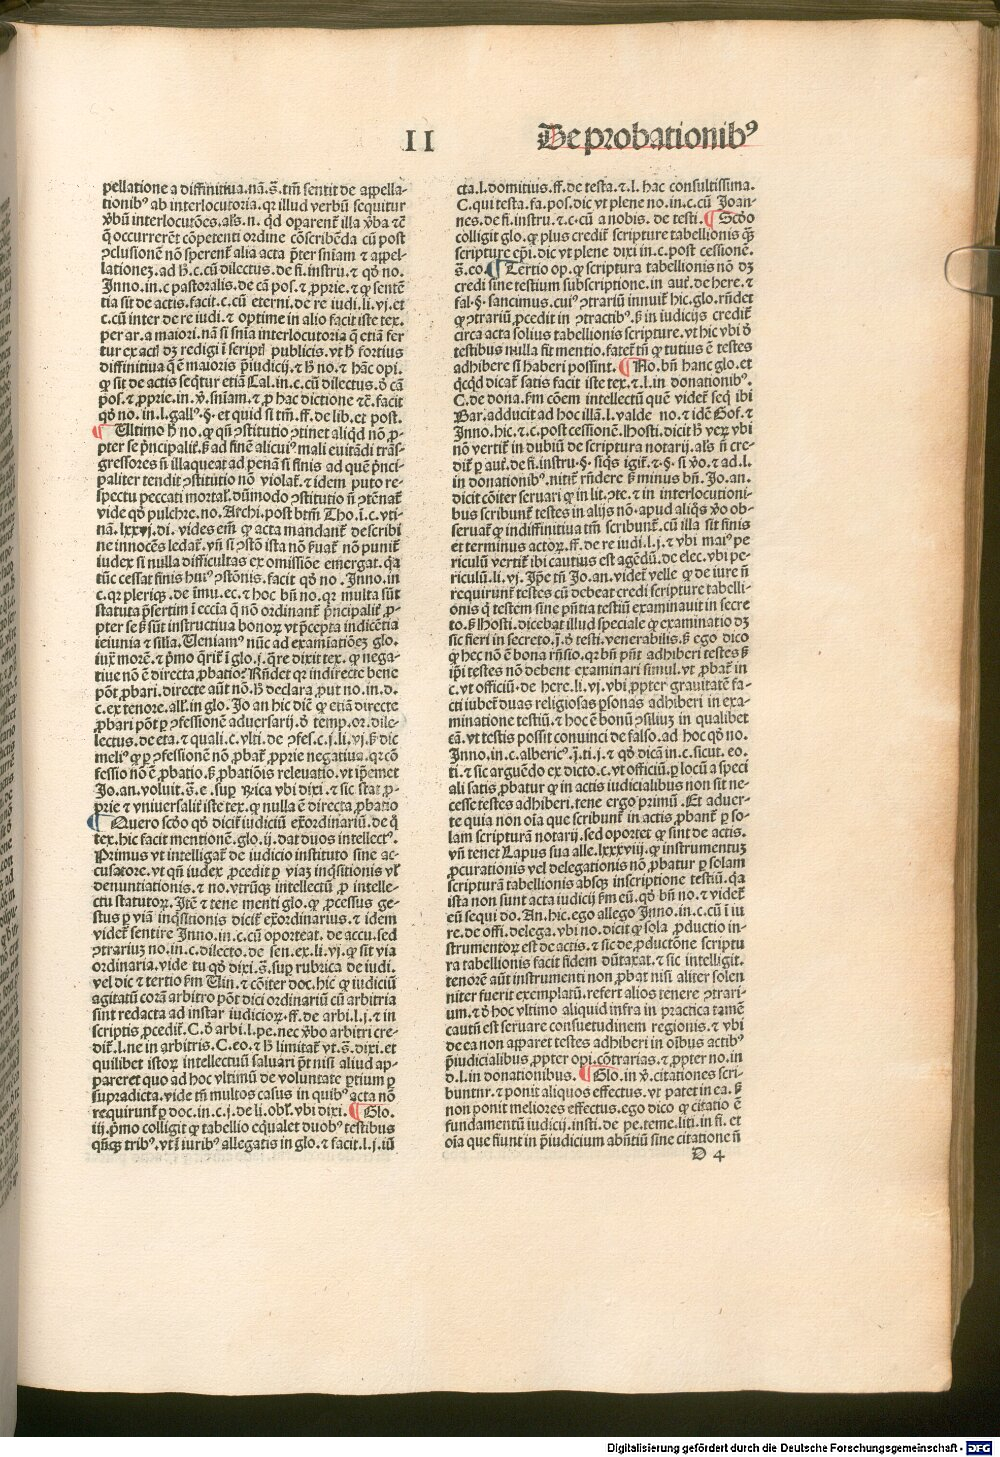 II
De probationibꝰ
pellatione a diffinitiua.nā.s̄.tm̄ sentit de appella-
tionibꝰ ab interlocutoria.qr illud verbū sequitur
v̄bū interlocutōes.als̄.n. qd oparent̄ illa v̄ba ⁊c̄
q̄ occurrerēt cōpetenti ordine cōscribēda cū post
ↄclusionē nō sperent̄ alia acta p̄ter sniam ⁊ appel-
lationez.ad h̄.c.cū dilectus.de fi.instru.⁊ qḋ no.
Inno.in.c pastoralis.de cā pos.⁊ ꝓprie.⁊ ꝙ sentē
tia sit de actis.facit.c.cū eterni.de re iudi.li.vj.et
c.cū inter de re iudi.⁊ optime in alio facit iste tex.
per ar.a maiori.nā si snia interlocutoria q̄ etiā fer
tur ex actꝭ dꝫ redigi ī scriptꝭ publicis.vt h̄ fortius
diffinitiua q̄ ē maioris p̄iudicij.⁊ h̄ no.⁊ hāc opi.
ꝙ sit de actis seq̄tur etiā Cal.in.c.cū dilectus.ḋ cā
pos.⁊ ꝓprie.in.v̄.sniam.⁊ ꝓ hac dictione ⁊c̄.facit
qḋ no.in.l.gallꝰ.§.et quid si tm̄.ff.de lib.et post.
¶ Ultimo h̄ no.ꝙ qn̄ ↄstitutio ↄtinet aliqd nō ꝓ-
pter se p̄ncipalit̄.ß ad finē alicuiꝰ mali euitādi trās-
gressores n̄ illaqueat ad penā si finis ad quē p̄nci-
paliter tendit ↄstitutio nō violat̄.⁊ idem puto re-
spectu peccati mortal̄.dūmodo ↄstitutio n̄ ↄtēnat̄
vide qḋ pulchre.no.Archi.post btm̄ Tho.ī.c.vti-
nā.lxxvj.di.vides em̄ ꝙ acta mandant̄ describi
ne innocēs ledat̄.vn̄ si ↄstō ista nō ẜuat̄ nō punit̄
iudex si nulla difficultas ex omissiōe emergat.qa
tūc cessat finis huiꝰ ↄstōnis.facit qḋ no.Inno.in
c.qr pleriqꝫ.de īmu.ec.⁊ hoc bn̄ no.qr multa sūt
statuta p̄sertim ī eccia q̄ nō ordinant̄ p̄ncipalit̄ ꝓ-
pter se ß sūt instructiua bonoꝝ vt p̄cepta indicētia
ieiunia ⁊ silia.Ueniamꝰ nūc ad examiatiōeꝫ glo.
iux̄ morē.⁊ p̄mo q̄rit̄ ī glo.j.q̄re dixit tex.ꝙ nega-
tiue nō ē directa ꝓbatio? Rn̄det qr indirecte bene
pōt ꝓbari.directe aūt nō.h̄ declara ꝓut no.in.d.
c.ex tenore.all̄.in glo.Jo an hic diē ꝙ etiā directe
ꝓbari pōt ꝑ ↄfessionē aduersarij.ḋ temp.or.dile-
lectus.de eta.⁊ quali.c.vlti.de ↄfes.c.j.li.vj.ß dic
meliꝰ ꝙ ꝑ ↄfessionē nō ꝓbat̄ ꝓprie negatiua.qr cō
fessio nō ē ꝓbatio.ß ꝓbatiōis releuatio.vt ip̄emet
Jo.an.voluit.s̄.e.suꝑ Rrica vbi dixi.⁊ sic stat ꝓ-
prie ⁊ vniuersalit̄ iste tex.ꝙ nulla ē directa ꝓbatio
¶ Quero scḋo qḋ dicit̄ iudiciū ex̄ordinariū.de q̄
tex.hic facit mentionē.glo.ij.dat duos intellectꝰ.
Primus vt intelligat̄ de iudicio instituto sine ac-
cusatore.vt qn̄ iudex ꝓcedit ꝑ viaꝫ inqsitionis vl̄
denuntiationis.⁊ no.vtrūqꝫ intellectū ꝓ intelle-
ctu statutoꝝ.Itē ⁊ tene menti glo.ꝙ ꝓcessus ge-
stus ꝑ viā inqsitionis dicit̄ ex̄ordinarius.⁊ idem
videt̄ sentire Inno.in.c.cū oporteat.de accu.sed
ↄtrariuꝫ no.in.c.dilecto.de sen.ex.li.vj.ꝙ sit via
ordinaria.vide tu qḋ dixi.s̄.suꝑ rubrica de iudi.
vel dic ⁊ tertio ẜm Ulin.⁊ cōiter doc.hic ꝙ iudiciū
agitatū corā arbitro pōt dici ordinariū cū arbitria
sint redacta ad instar iudicioꝝ.ff.de arbi.l.j.⁊ in
scriptis ꝓcedit̄.C.ḋ arbi.l.pe.nec v̄bo arbitri cre-
dit̄.l.ne in arbitris.C.eo.⁊ h̄ limitat̄ vt.s̄.dixi.et
quilibet istoꝝ intellectuū saluari p̄t nisi aliud ap-
pareret quo ad hoc vltimū de voluntate ꝑtium ꝑ
supradicta.vide tm̄ multos casus in quibꝰ acta nō
requirunt̄ ꝑ doc.in.c.j.de li.obl̄.vbi dixi. ¶ Glo.
iij.p̄mo colligit ꝙ tabellio equalet duobꝰ testibus
qn̄qꝫ tribꝰ.vt ī iuribꝰ allegatis in glo.⁊ facit.l.j.iū
cta.l.domitius.ff.de testa.⁊.l. hac consultissima.
C.qui testa.fa.pos.dic vt plene no.in.c.cū Joan-
nes.de fi.instru.⁊.c.cū a nobis. de testi. ¶ Scḋo
colligit glo.ꝙ plus credit̄ scripture tabellionis qꝫ
scripture ep̄i.dic vt plene dixi in.c.post cessionē.
s̄.eo. ¶ Tertio op.ꝙ scriptura tabellionis nō dꝫ
credi sine testium subscriptione.in aut̄.de here.⁊
fal.§.sancimus.cuiꝰ ↄtrariū innuit̄ hic.glo.rn̄det
ꝙ ↄtrariū ꝓcedit in ↄtractibꝰ.ß in iudicijs credit̄
circa acta solius tabellionis scripture.vt hic vbi ḋ
testibus nulla fit mentio.fatet̄ tn̄ ꝙ tutius ē testes
adhibere si haberi possint. ¶ No.bn̄ hanc glo.et
qcqd dicat̄ satis facit iste tex.⁊.l.in donationibꝰ.
C.de dona.ẜm cōem intellectū quē videt̄ seq̄ ibi
Bar.adducit ad hoc illā.l.valde no.⁊ idē Gof.⁊
Inno.hic.⁊.c.post cessionē.Hosti.dicit h̄ veꝝ vbi
nō vertit̄ in dubiū de scriptura notarij.als̄ n̄ cre-
dit̄ ꝑ aut̄.de fi.instru.§.siqs igit̄.⁊.§.si v̄o.⁊ ad.l.
in donationibꝰ.nitit̄ rn̄dere ß minus bn̄.Jo.an.
dicit cōiter seruari ꝙ in lit.ↄte.⁊ in interlocutioni-
bus scribunt̄ testes in alijs nō.apud aliqs v̄o ob-
seruat̄ ꝙ indiffinitiua tm̄ scribunt̄.cū illa sit finis
et terminus actoꝝ.ff.de re iudi.l.j.⁊ vbi maiꝰ pe
riculū vertit̄ ibi cautius est agēdū.de elec.vbi pe-
riculū.li.vj.Ip̄e tn̄ Jo.an.videt̄ velle ꝙ de iure n̄
requirunt̄ testes cū debeat credi scripture tabelli-
onis q̄ testem sine pn̄tia testiū examinauit in secre
to.ß Hosti.dicebat illud speciale ꝙ examinatio dꝫ
sic fieri in secreto.j̄.ḋ testi.venerabilis.ß ego dico
ꝙ hec nō ē bona rn̄sio.qr bn̄ pn̄t adhiberi testes ß
ip̄i testes nō debent examinari simul.vt ꝓbat̄ in
c.vt officiū.de here.li.vj.vbi ꝓpter grauitatē fa-
cti iubet̄ duas religiosas ꝑsonas adhiberi in exa-
minatione testiū.⁊ hoc ē bonū ↄsiliuꝫ in qualibet
cā.vt testis possit conuinci de falso.ad hoc qḋ no.
Inno.in.c.albericꝰ.j̄.ti.j.⁊ qḋ dicā in.c.sicut.eo.
ti.⁊ sic arguēdo ex dicto.c.vt officiū.ꝑ locū a speci
ali satis ꝓbatur ꝙ in actis iudicialibus non sit ne-
cesse testes adhiberi.tene ergo primū.Et aduer-
te quia non oīa que scribunt̄ in actis ꝓbant̄ ꝑ so-
lam scripturā notarij.sed oportet ꝙ sint de actis.
vn̄ tenet Lapus sua alle.lxxxviij.ꝙ instrumentuꝫ
ꝓcurationis vel delegationis nō ꝓbatur ꝑ solam
scripturā tabellionis absqꝫ inscriptione testiū.qa
ista non sunt acta iudicij ẜm eū.qḋ bn̄ no.⁊ videt̄
eū sequi do.An.hic.ego allego Inno.in.c.cū ī iu
re.de offi.delega.vbi no.dicit ꝙ sola ꝓductio in-
strumentoꝝ est de actis.⁊ sic de ꝓductōne scriptu
ra tabellionis facit fidem dūtaxat.⁊ sic intelligit.
tenorē aūt instrumenti non ꝓbat nisi aliter solen
niter fuerit exemplatū.refert alios tenere ↄtrari-
um.⁊ ḋ hoc vltimo aliquid infra in practica tamē
cautū est seruare consuetudinem regionis.⁊ vbi
de ea non apparet testes adhiberi in oībus actibꝰ
p̄iudicialibus ꝓpter opi.cōtrarias.⁊ ꝓpter no.in
d.l.in donationibus. ¶ Glo.in v̄.citationes scri-
buntnr.⁊ ponit aliquos effectus.vt patet in ea.ß
non ponit meliores effectus.ego dico ꝙ citatio ē
fundamentū iudicij.insti.de pe.teme.liti.in fi.et
oīa que fiunt in p̄iudicium abn̄tiū sine citatione n̄
D 4
Digitalisierung gefördert durch die Deutsche Forschungsgemeinschaft - DFG